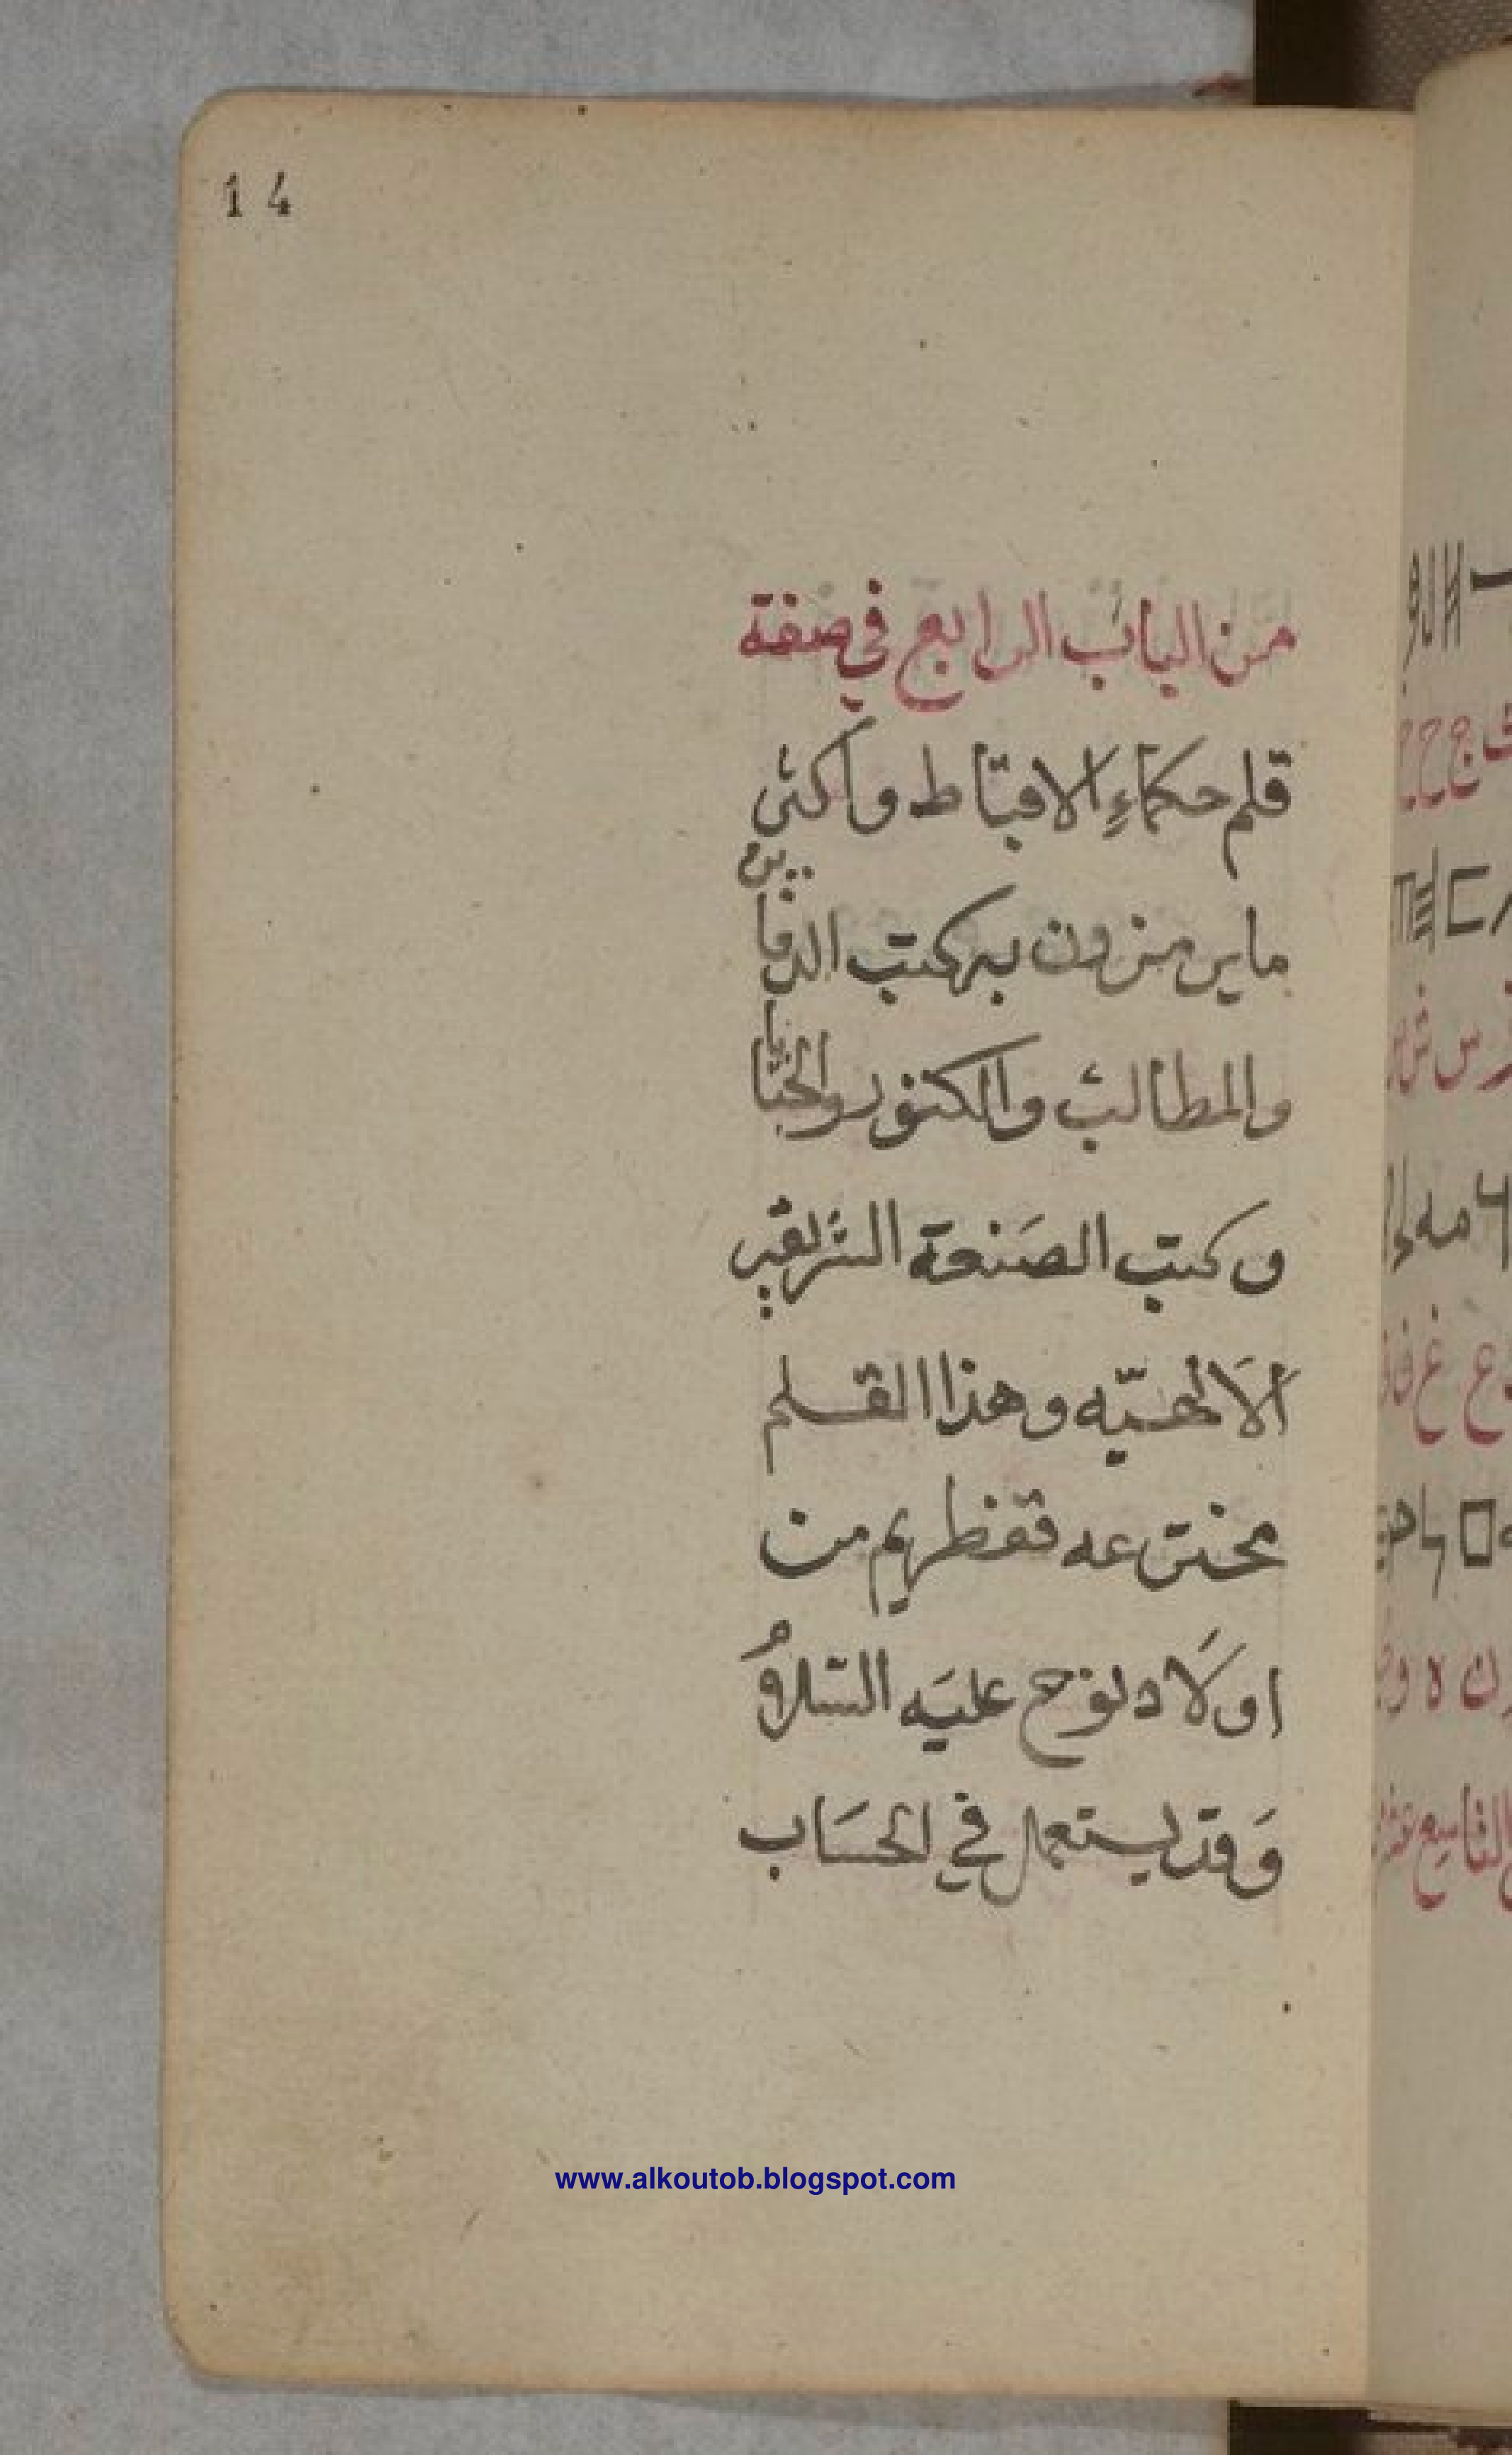 14
من الباب الرابع في صفة
قلم حكماءِ الاقباط واكثر
ما يرمزون به كتب الدفاين
والمطالب والكنوز والخبايا
وكتب الصَنعة الشريفة
الالهيّه وهذا القلم
مخترعه قفطريم من
اولَاد نوح عليَه السّلامُ
وَقد يستعمل في الحسَاب
www.alkoutob.blogspot.com